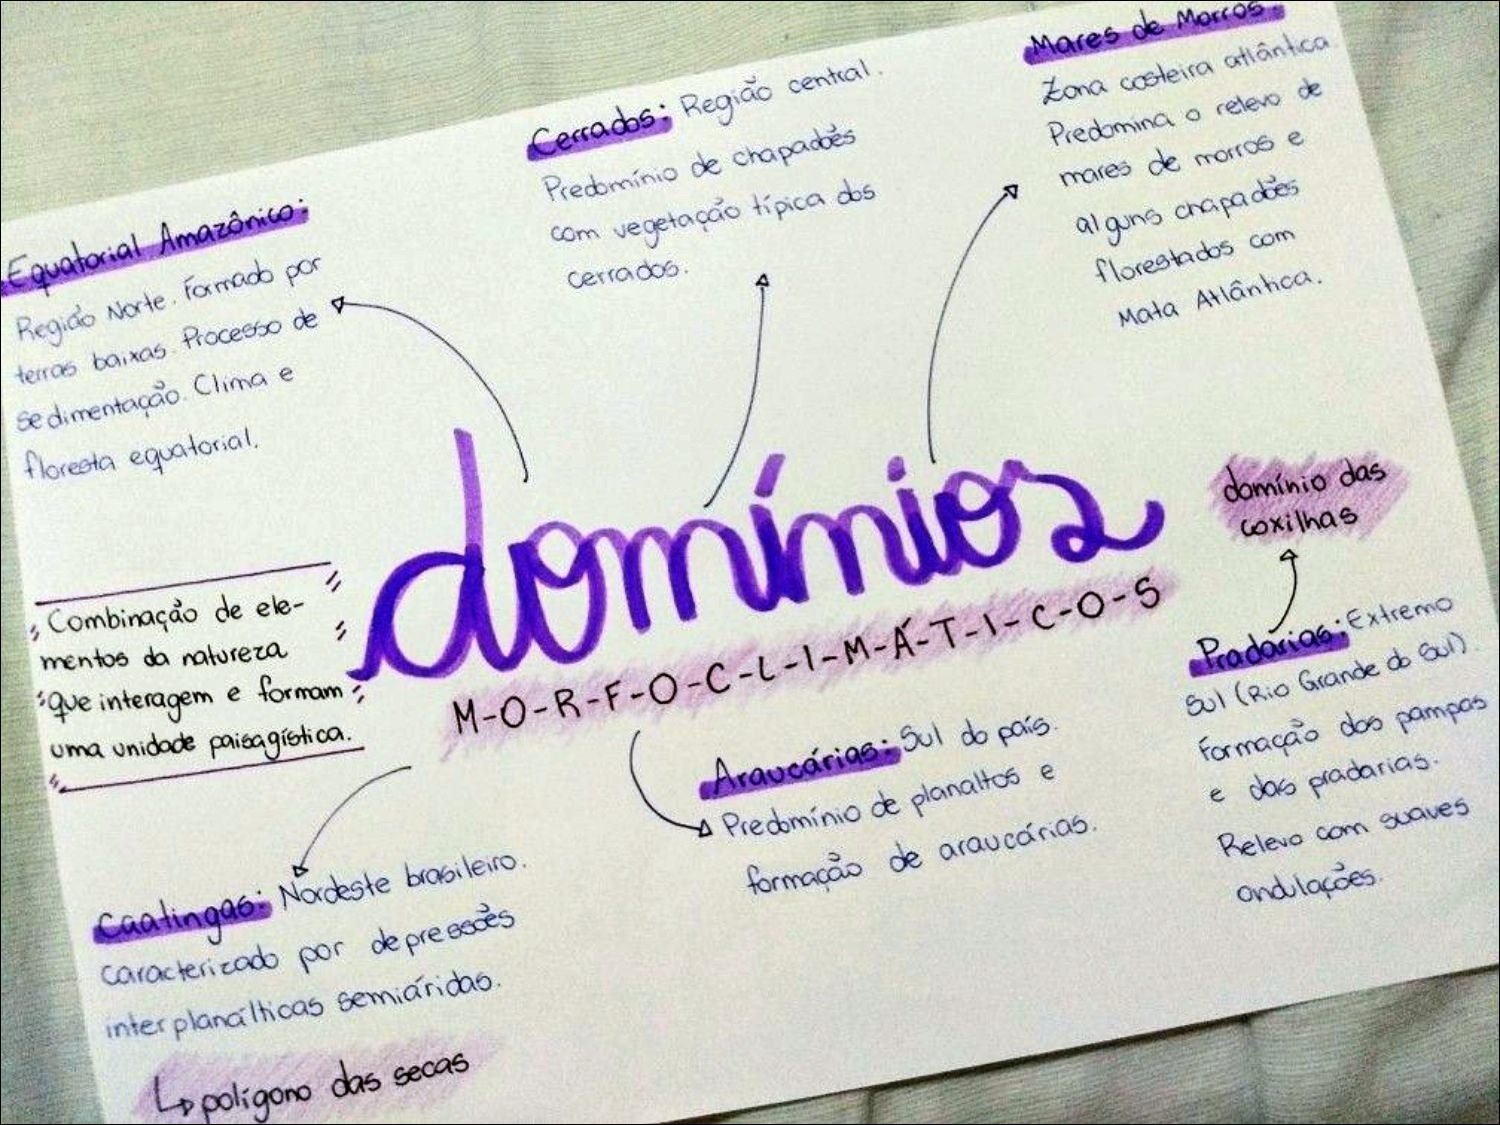 Mares de Morros:
Zona costeira atlântica.
Predomina o relevo de
mares de morros e
alguns chapadões
florestados com
Mata Atlântica.
Cerrados: Região central.
Predomínio de chapadões
com vegetação típica dos
cerrados.
Equatorial Amazônico:
Região Norte. Formado por
terras baixas. Processo de
sedimentação. Clima e
floresta equatorial.
domínios
M-O-R-F-O-C-L-I-M-Á-T-I-C-O-S
Combinação de ele-
mentos da natureza
que interagem e formam
uma unidade paisagística.
domínio das
coxilhas
Pradarias: Extremo
Sul (Rio Grande do Sul).
Formação dos pampas
e das pradarias.
Relevo com suaves
ondulações.
Araucárias: Sul do país.
Predomínio de planaltos e
formação de araucárias.
Caatingas: Nordeste brasileiro.
caracterizado por depressões
interplanálticas semiáridas.
↳ polígono das secas